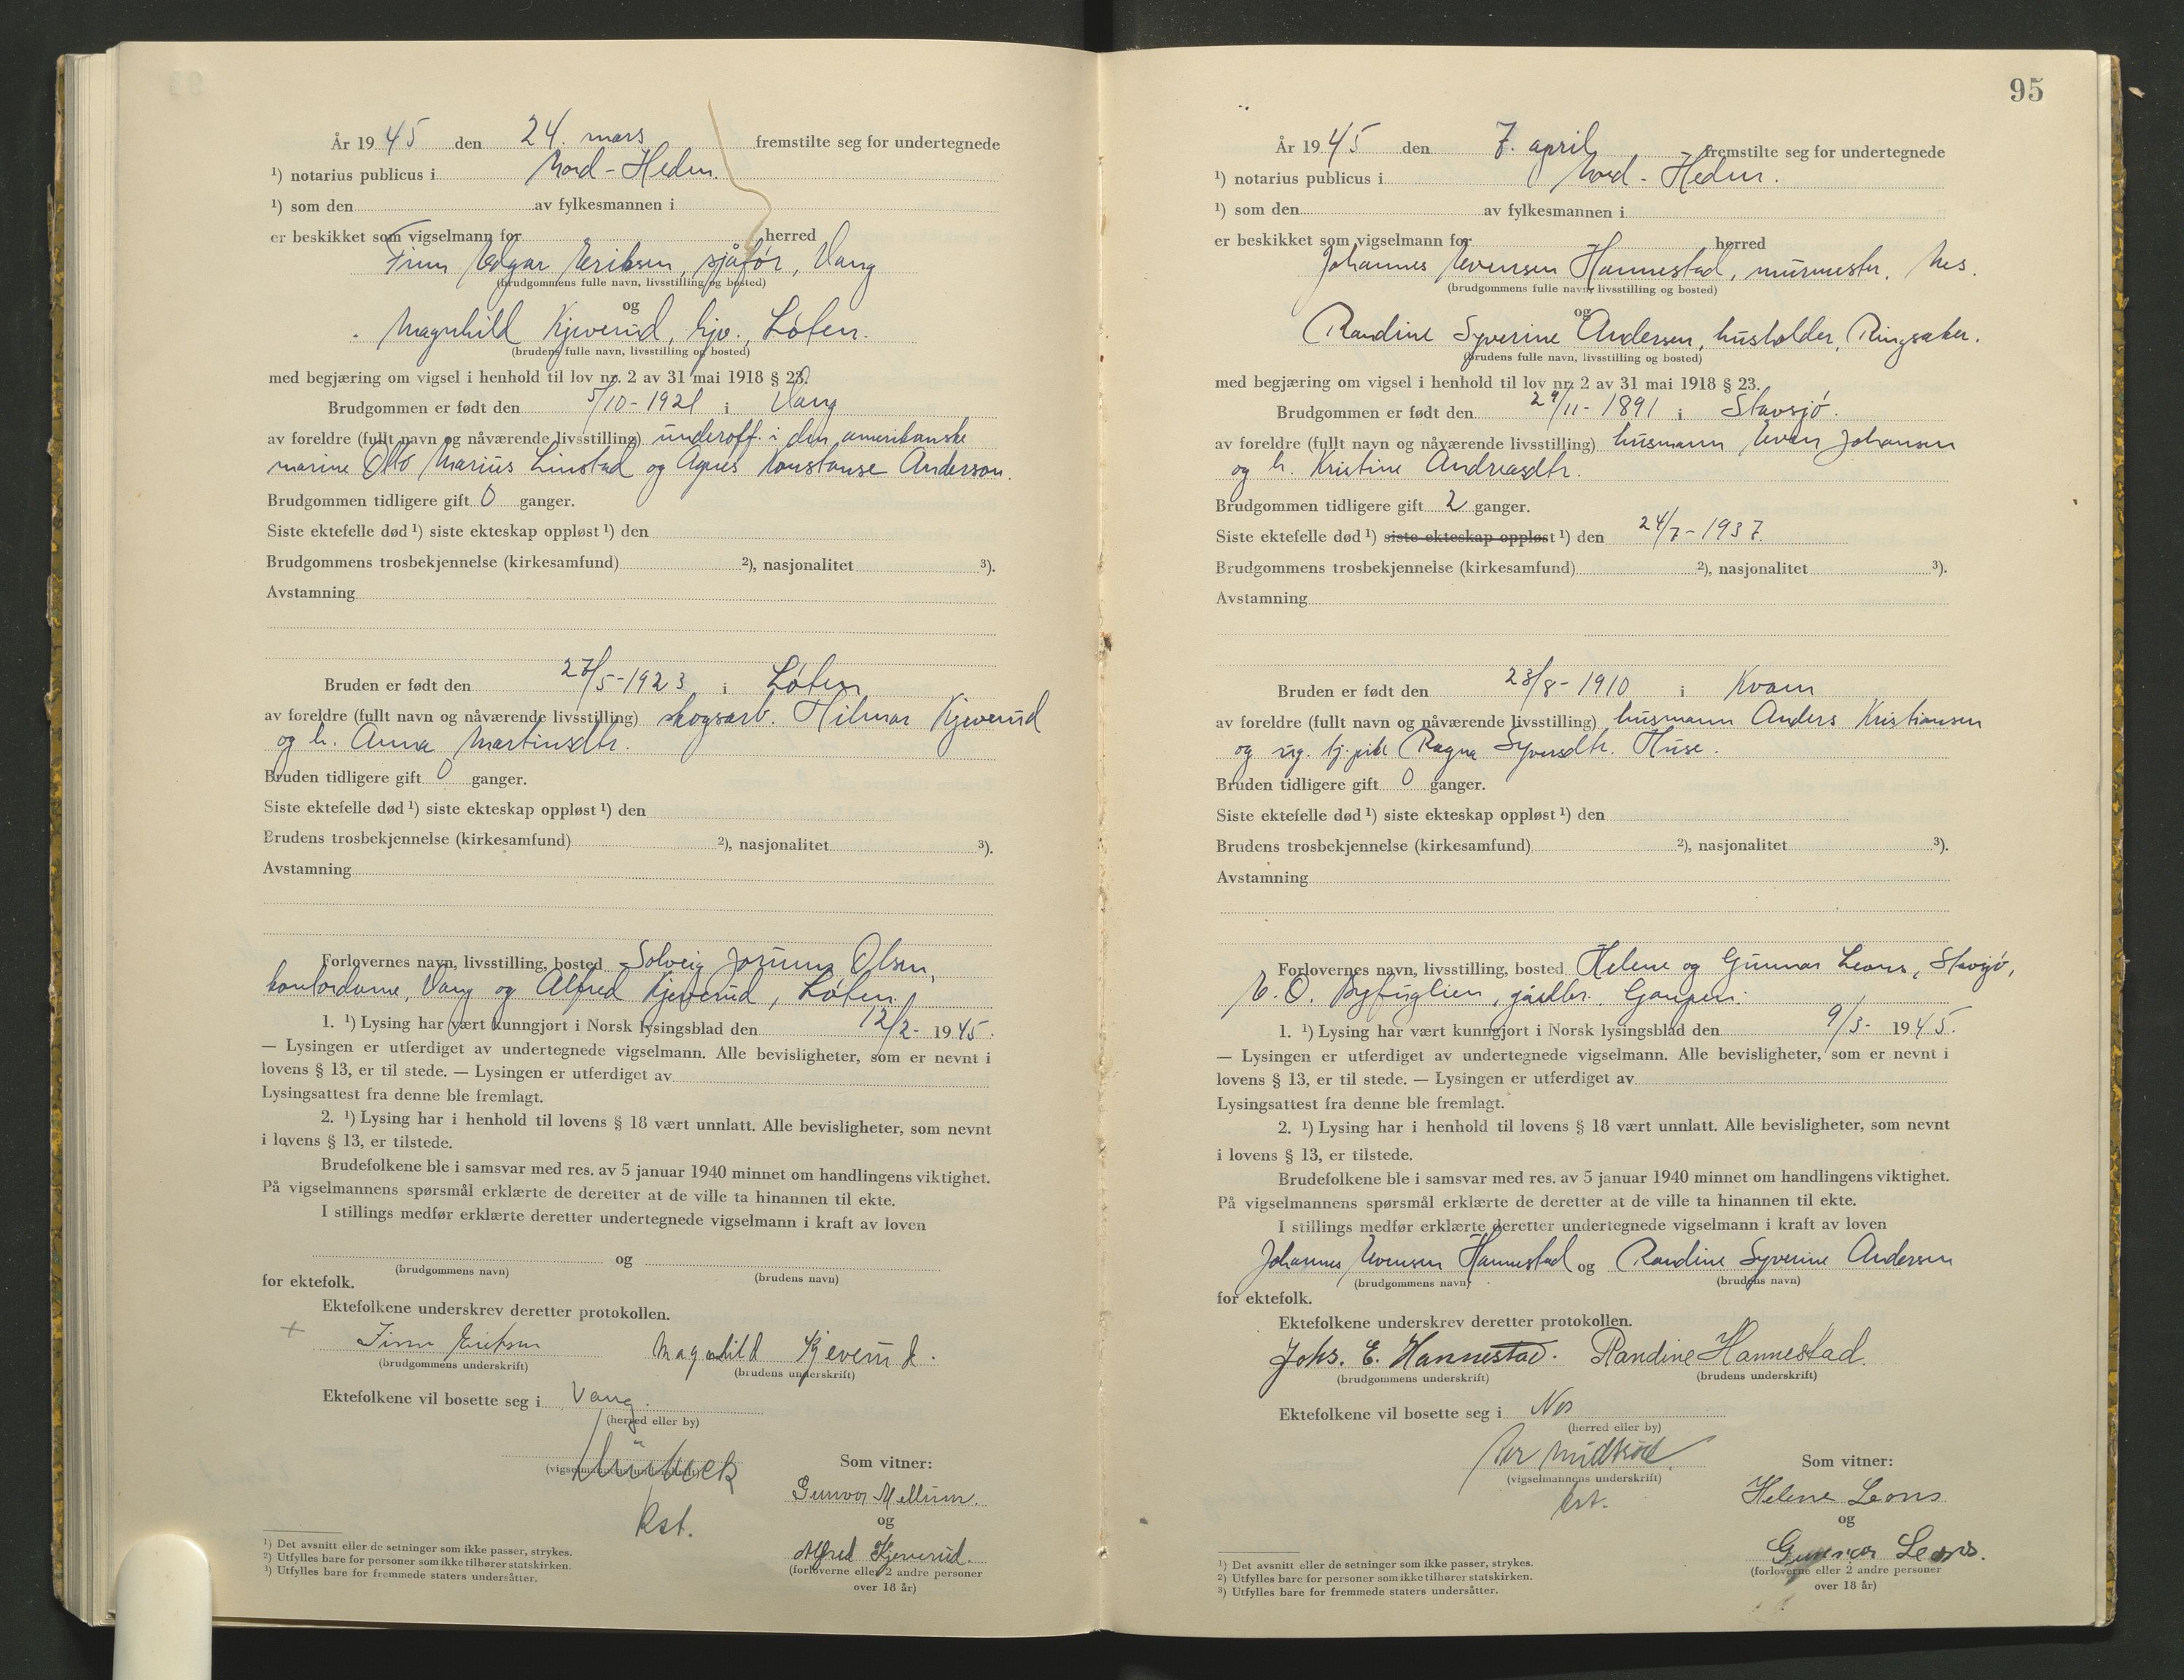 År 1945 den 24. mars fremstilte seg for undertegnede
¹) notarius publicus i Nord-Hedm.
¹) som den av fylkesmannen i
er beskikket som vigselmann for herred
Finn Edgar Eriksen, sjåfør, Vang
(brudgommens fulle navn, livsstilling og bosted)
og
Magnhild Kjeverud, hjv., Løten.
(brudens fulle navn, livsstilling og bosted)
med begjæring om vigsel i henhold til lov nr. 2 av 31 mai 1918 § 23.
Brudgommen er født den 5/10-1921 i Vang
av foreldre (fullt navn og nåværende livsstilling) underoff. i den amerikanske
marine Otto Marius Linstad og Agnes Konstanse Anderson.
Brudgommen tidligere gift 0 ganger.
Siste ektefelle død ¹) siste ekteskap oppløst ¹) den
Brudgommens trosbekjennelse (kirkesamfund) ²), nasjonalitet ³).
Avstamning
Bruden er født den 27/5-1923 i Løten
av foreldre (fullt navn og nåværende livsstilling) skogsarb. Hilmar Kjeverud
og h. Anna Martinsdtr.
Bruden tidligere gift 0 ganger.
Siste ektefelle død ¹) siste ekteskap oppløst ¹) den
Brudens trosbekjennelse (kirkesamfund) ²), nasjonalitet ³).
Avstamning
Forlovernes navn, livsstilling, bosted Solveig Jorunn Olsen,
kontordame, Vang og Alfred Kjeverud, Løten.
1. ¹) Lysing har vært kunngjort i Norsk lysingsblad den 12/2- 1945.
— Lysingen er utferdiget av undertegnede vigselmann. Alle bevisligheter, som er nevnt i
lovens § 13, er til stede. — Lysingen er utferdiget av
Lysingsattest fra denne ble fremlagt.
2. ¹) Lysing har i henhold til lovens § 18 vært unnlatt. Alle bevisligheter, som nevnt
i lovens § 13, er tilstede.
Brudefolkene ble i samsvar med res. av 5 januar 1940 minnet om handlingens viktighet.
På vigselmannens spørsmål erklærte de deretter at de ville ta hinannen til ekte.
I stillings medfør erklærte deretter undertegnede vigselmann i kraft av loven
og
(brudgommens navn) (brudens navn)
for ektefolk.
Ektefolkene underskrev deretter protokollen.
+ Finn Eriksen Magnhild Kjeverud.
(brudgommens underskrift) (brudens underskrift)
Ektefolkene vil bosette seg i Vang.
(herred eller by)
(vigselmannens underskrift)
kst.
Som vitner:
Gunvor Mellum.
og
Alfred Kjeverud.
(forloverne eller 2 andre personer
over 18 år)
¹) Det avsnitt eller de setninger som ikke passer, strykes.
²) Utfylles bare for personer som ikke tilhører statskirken.
³) Utfylles bare for fremmede staters undersåtter.
95
År 1945 den 7. april fremstilte seg for undertegnede
¹) notarius publicus i Nord-Hedm.
¹) som den av fylkesmannen i
er beskikket som vigselmann for herred
Johannes Evensen Hannestad, murmester, Nes.
(brudgommens fulle navn, livsstilling og bosted)
og
Randine Syverine Andersen, husholder, Ringsaker.
(brudens fulle navn, livsstilling og bosted)
med begjæring om vigsel i henhold til lov nr. 2 av 31 mai 1918 § 23.
Brudgommen er født den 29/11-1891 i Stavsjø.
av foreldre (fullt navn og nåværende livsstilling) husmann Even Johansen
og h. Kristine Andreasdtr.
Brudgommen tidligere gift 2 ganger.
Siste ektefelle død ¹) siste ekteskap oppløst ¹) den 24/7-1937.
Brudgommens trosbekjennelse (kirkesamfund) ²), nasjonalitet ³).
Avstamning
Bruden er født den 23/8-1910 i Kvam
av foreldre (fullt navn og nåværende livsstilling) husmann Anders Kristiansen
og ug. tj.pike Ragna Syversdtr. Huse.
Bruden tidligere gift 0 ganger.
Siste ektefelle død ¹) siste ekteskap oppløst ¹) den
Brudens trosbekjennelse (kirkesamfund) ²), nasjonalitet ³).
Avstamning
Forlovernes navn, livsstilling, bosted Helene og Gunnar Leons, Stavsjø,
E. O. Byfuglien, gårdbr. Gaupen.
1. ¹) Lysing har vært kunngjort i Norsk lysingsblad den 9/3- 1945.
— Lysingen er utferdiget av undertegnede vigselmann. Alle bevisligheter, som er nevnt i
lovens § 13, er til stede. — Lysingen er utferdiget av
Lysingsattest fra denne ble fremlagt.
2. ¹) Lysing har i henhold til lovens § 18 vært unnlatt. Alle bevisligheter, som nevnt
i lovens § 13, er tilstede.
Brudefolkene ble i samsvar med res. av 5 januar 1940 minnet om handlingens viktighet.
På vigselmannens spørsmål erklærte de deretter at de ville ta hinannen til ekte.
I stillings medfør erklærte deretter undertegnede vigselmann i kraft av loven
Johannes Evensen Hannestad og Randine Syverine Andersen
(brudgommens navn) (brudens navn)
for ektefolk.
Ektefolkene underskrev deretter protokollen.
Johs. E. Hannestad. Randine Hannestad.
(brudgommens underskrift) (brudens underskrift)
Ektefolkene vil bosette seg i Nes
(herred eller by)
(vigselmannens underskrift)
kst.
Som vitner:
Helene Leons
og
Gunnar Leons.
(forloverne eller 2 andre personer
over 18 år)
¹) Det avsnitt eller de setninger som ikke passer, strykes.
²) Utfylles bare for personer som ikke tilhører statskirken.
³) Utfylles bare for fremmede staters undersåtter.